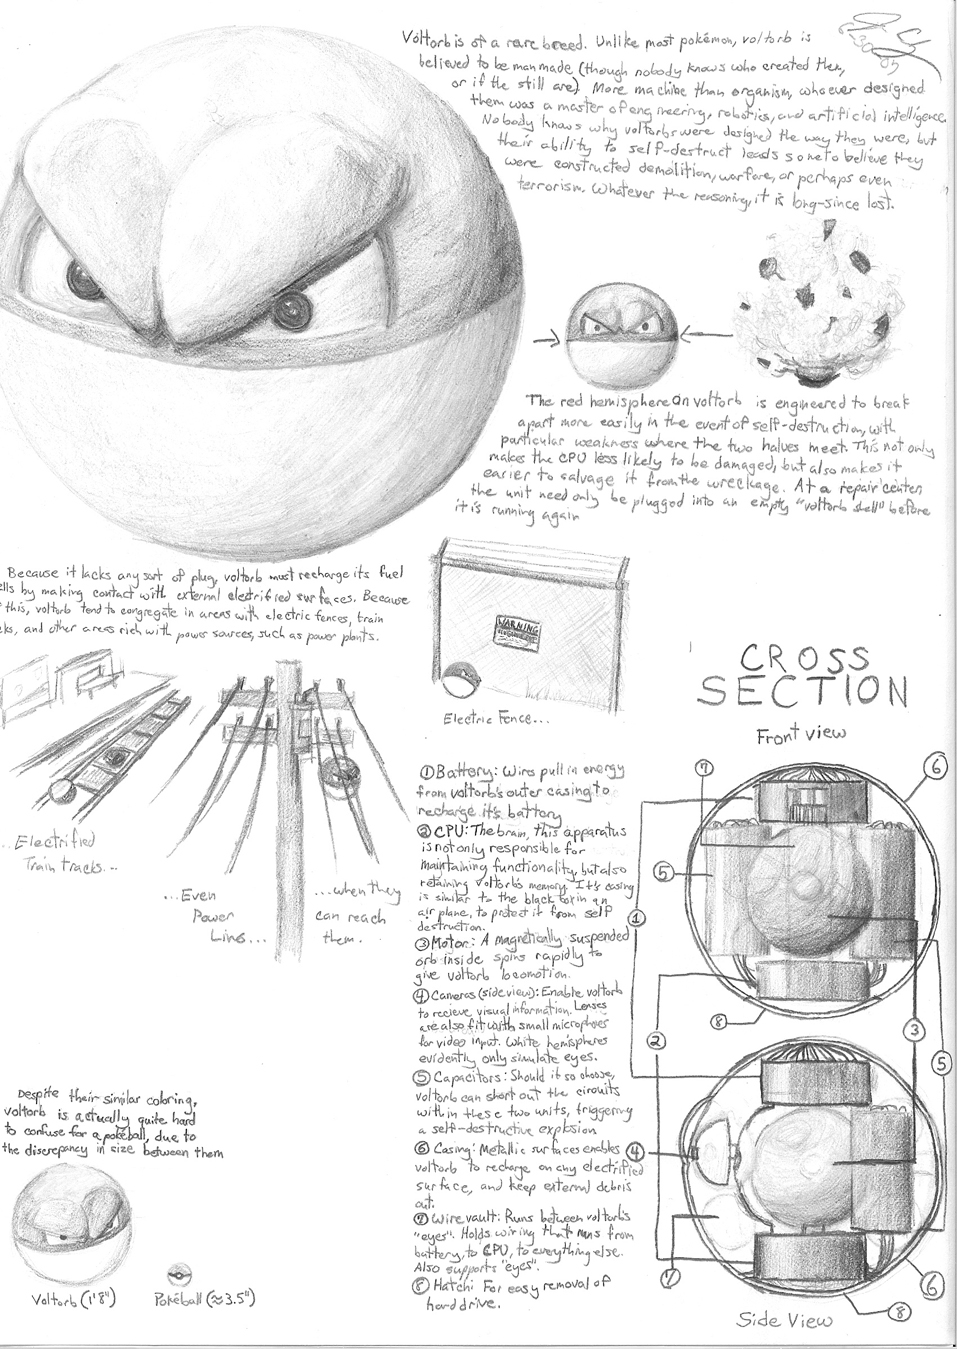 Voltorb is of a rare breed. Unlike most pokémon, voltorb is
believed to be manmade (though nobody knows who created them,
or if the still are). More machine than organism, whoever designed
them was a master of engineering, robotics, and artificial intelligence.
Nobody knows why voltorbs were designed the way they were, but
their ability to self-destruct leads some to believe they
were constructed demolition, warfare, or perhaps even
terrorism. Whatever the reasoning, it is long-since lost.
The red hemisphere on voltorb is engineered to break
apart more easily in the event of self-destruction, with
particular weakness where the two halves meet. This not only
makes the CPU less likely to be damaged, but also makes it
easier to salvage it from the wreckage. At a repair center
the unit need only be plugged into an empty "voltorb shell" before
it is running again
Because it lacks any sort of plug, voltorb must recharge its fuel
lls by making contact with external electrified surfaces. Because
this, voltorb tend to congregate in areas with electric fences, train
ks, and other areas rich with power sources, such as power plants.
WARNING
Electric Fence...
...Electrified
Train tracks...
...Even
Power
Lines...
...when they
can reach
them.
CROSS
SECTION
Front view
① Battery: Wires pull in energy
from voltorb's outer casing to
recharge it's battery
② CPU: The brain, this apparatus
is not only responsible for
maintaining functionality, but also
retaining voltorb's memory. It's casing
is similar to the black box in an
air plane, to protect it from self
destruction.
③ Motor: A magnetically suspended
orb inside spins rapidly to
give voltorb locomotion.
④ Cameras (side view): Enable voltorb
to recieve visual information. Lenses
are also fit with small microphones
for video input. White hemispheres
evidently only simulate eyes.
⑤ Capacitors: Should it so choose,
voltorb can short out the circuits
within these two units, triggering
a self-destructive explosion
⑥ Casing: Metallic surfaces enables
voltorb to recharge on any electrified
surface, and keep external debris
out.
⑦ Wire vault: Runs between voltorb's
"eyes". Holds wiring that runs from
battery, to CPU, to everything else.
Also supports "eyes".
⑧ Hatch: For easy removal of
hard drive.
⑦
⑥
⑤
①
③
⑧
②
⑤
④
⑦
⑥
⑧
Side View
Despite their similar coloring,
voltorb is actually quite hard
to confuse for a pokéball, due to
the discrepancy in size between them
Voltorb (1'8")
Pokéball (≈3.5")